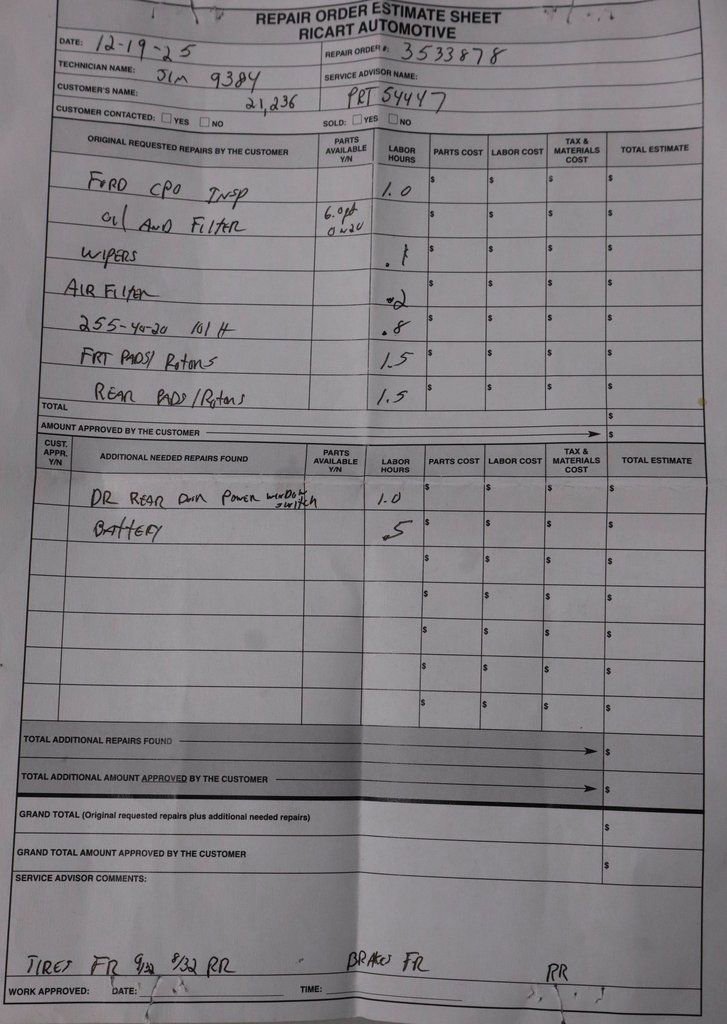 REPAIR ORDER ESTIMATE SHEET
RICART AUTOMOTIVE
DATE: 12-19-25
REPAIR ORDER #: 3533878
TECHNICIAN NAME: JIM 9384
SERVICE ADVISOR NAME:
CUSTOMER'S NAME: 21,236
PRT 54447
CUSTOMER CONTACTED: YES NO
SOLD: YES NO
ORIGINAL REQUESTED REPAIRS BY THE CUSTOMER PARTS AVAILABLE Y/N LABOR HOURS PARTS COST LABOR COST TAX & MATERIALS COST TOTAL ESTIMATE
FORD CPO INSP 1.0 $ $ $ $
Oil AND FilTER 6.0qt 0w20 $ $ $ $
WIPERS .1 $ $ $ $
AIR FilTER .2 $ $ $ $
255-40-20 101 H .8 $ $ $ $
FRT PADS/ Rotors 1.5 $ $ $ $
REAR PADS/Rotors 1.5 $ $ $ $
TOTAL $
AMOUNT APPROVED BY THE CUSTOMER $
CUST. APPR. Y/N ADDITIONAL NEEDED REPAIRS FOUND PARTS AVAILABLE Y/N LABOR HOURS PARTS COST LABOR COST TAX & MATERIALS COST TOTAL ESTIMATE
DR REAR DOOR POWER WINDOW SWITCH 1.0 $ $ $ $
BATTERY .5 $ $ $ $
$ $ $ $
$ $ $ $
$ $ $ $
$ $ $ $
$ $ $ $
TOTAL ADDITIONAL REPAIRS FOUND $
TOTAL ADDITIONAL AMOUNT APPROVED BY THE CUSTOMER $
GRAND TOTAL (Original requested repairs plus additional needed repairs) $
GRAND TOTAL AMOUNT APPROVED BY THE CUSTOMER $
SERVICE ADVISOR COMMENTS:
TIRES FR 9/32 8/32 RR BRAKES FR RR
WORK APPROVED: DATE: TIME: